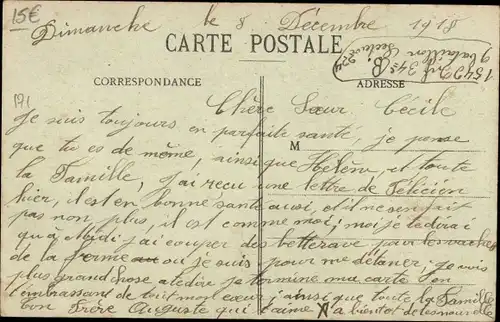 15€
Dimanche le 8 Décembre 1918
CARTE POSTALE
154e Inf 34e B
9 bataillon Secteur 224
CORRESPONDANCE
ADRESSE
191
Chère Sœur Cécile
Je suis toujours en parfaite santé, je pense
M
que tu es de même, ainsique Hélène, et toute
la Famille, J'ai reçu une lettre de Félicien
hier, il est en bonne santé aussi, et il ne s'en fait
pas non plus, il est comme moi; moi je te dirai
qu'à Midi j'ai couper des betterave pour les vaches
de la ferme ou je suis pour me délaner; je vois
plus grand chose a te dire je termine ma carte en
t'embrassant de tout mon cœur; ainsi que toute la Famille
ton Frère Auguste qui t'aime a bientot de tes nouvelle